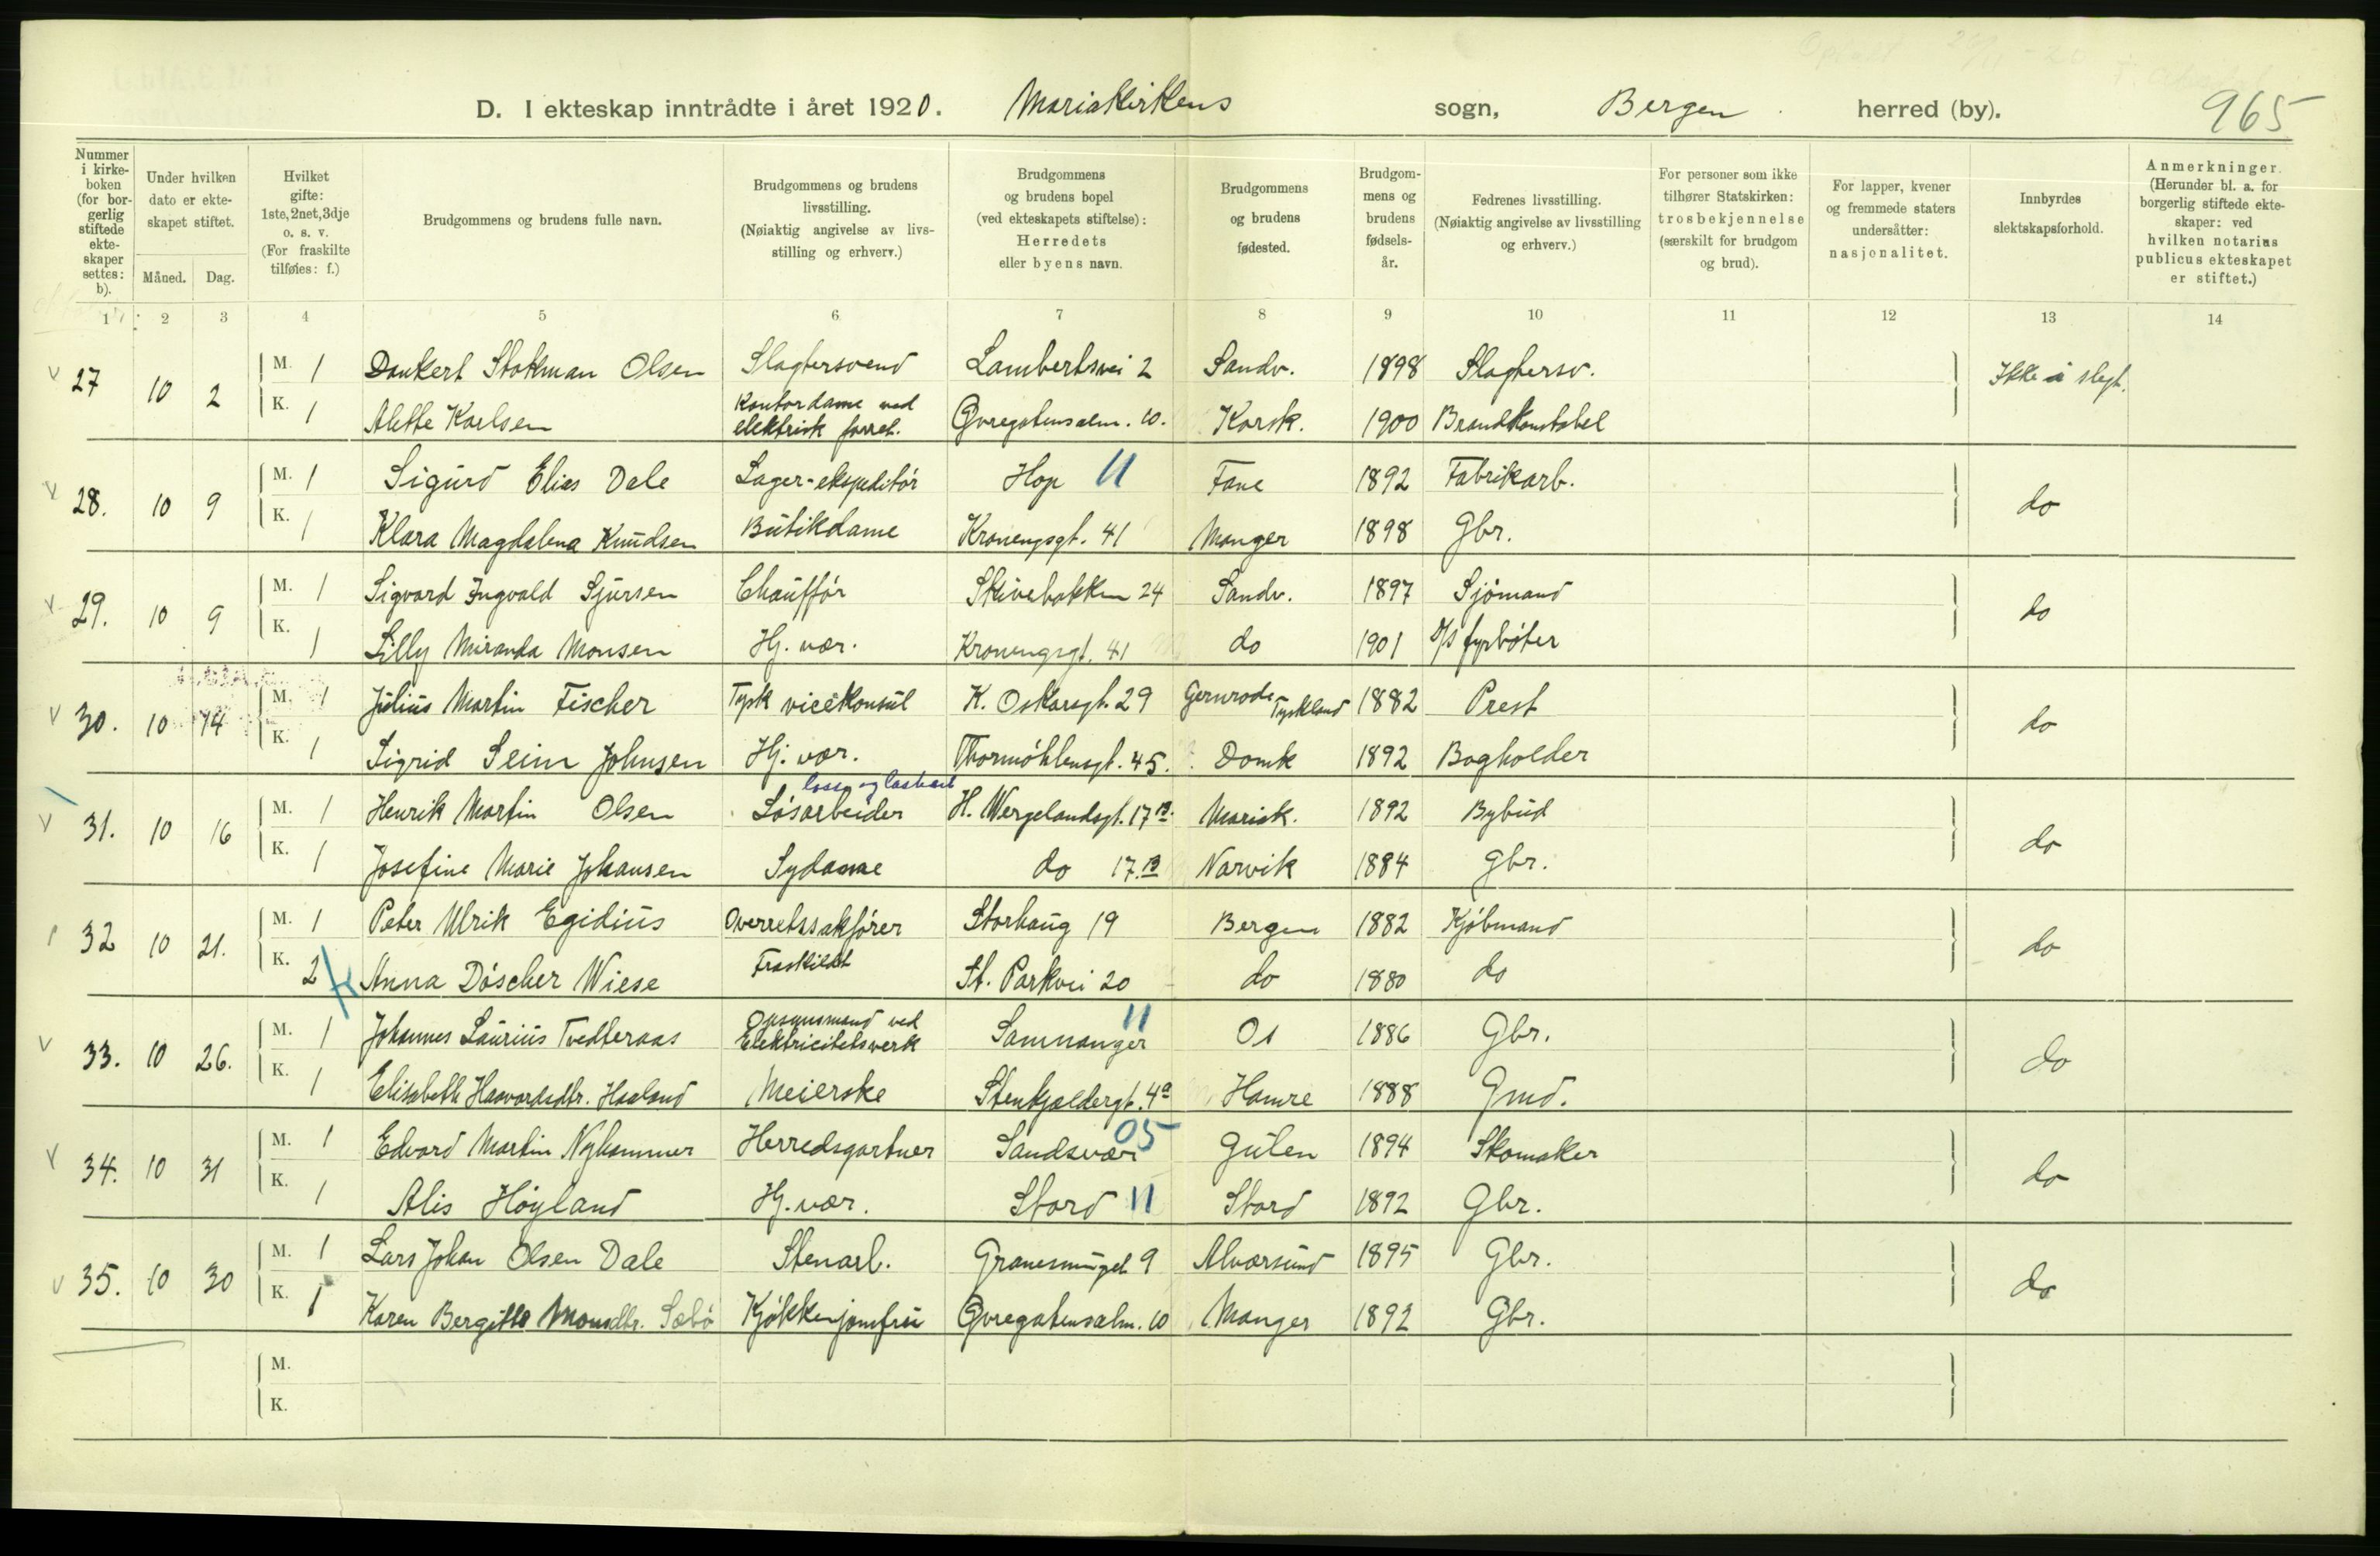 D. I ekteskap inntrådte i året 1920. Mariakirkens sogn, Bergen herred (by). 965
Nummer i kirkeboken (for borgerlig stiftede ekteskaper settes: b).
Under hvilken dato er ekteskapet stiftet. Måned. Dag.
Hvilket gifte: 1ste, 2net, 3dje o. s. v. (For fraskilte tilføies: f.)
Brudgommens og brudens fulle navn.
Brudgommens og brudens livsstilling. (Nøiaktig angivelse av livsstilling og erhverv.)
Brudgommens og brudens bopel (ved ekteskapets stiftelse): Herredets eller byens navn.
Brudgommens og brudens fødested.
Brudgommens og brudens fødselsår.
Fedrenes livsstilling. (Nøiaktig angivelse av livsstilling og erhverv.)
For personer som ikke tilhører Statskirken: trosbekjennelse (særskilt for brudgom og brud).
For lapper, kvener og fremmede staters undersåtter: nasjonalitet.
Innbyrdes slektskapsforhold.
Anmerkninger. (Herunder bl. a. for borgerlig stiftede ekteskaper: ved hvilken notarius publicus ekteskapet er stiftet.)
1 2 3 4 5 6 7 8 9 10 11 12 13 14
27 10 2 M. 1 Dankert Stokman Olsen Slagtersvend Lambertsvei 2 Sandv. 1898 Slagtersv. Ikke i slegt.
K. 1 Alette Karlsen Kontordame ved elektrisk forret. Øvregatensalm. 10. Korsk. 1900 Brandkonstabel
28. 10 9 M. 1 Sigurd Elias Dale Lager-ekspeditør Hop 11 Fane 1892 Fabrikarb. do
K. 1 Klara Magdalena Knudsen Butikdame Kronengsgt. 41 Manger 1898 Gbr.
29. 10 9 M. 1 Sigvard Ingvald Sjursen Chauffør Skivebakken 24 Sandv. 1897 Sjømand do
K. 1 Lilly Miranda Monsen Hj. vær. Kronengsgt. 41 do 1901 D/S fyrbøter
30. 10 14 M. 1 Julius Martin Fischer Tysk vicekonsul K. Oskarsgt. 29 Gernrode Tyskland 1882 Prest do
K. 1 Sigrid Seim Johnsen Hj. vær. Thormøhlensgt. 45. Domk 1892 Bogholder
31. 10 16 M. 1 Henrik Martin Olsen Løsarbeider H. Wergelandsgt. 17 B. Mariak. 1892 Bybud do
K. 1 Josefine Marie Johansen Sydame do 17. B Narvik 1884 Gbr.
32 10 21. M. 1 Peter Ulrik Egidius Overretssakfører Storhaug 19 Bergen 1882 Kjøbmand do
K. 2 f Anna Döscher Wiese Fraskilt St. Parkvei 20 do 1880 do
33. 10 26. M. 1 Johannes Laurius Tvedteraas Opsynsmand ved Elektricitetsverk Samnanger 11 Os 1886 Gbr. do
K. 1 Elisabeth Haavardsdtr. Haaland Meierske Stenkjeldergt. 4a Hamre 1888 Gmd.
34. 10 31 M. 1 Edvard Martin Nyhammer Herredsgartner Sandsvær 05 Gulen 1894 Skomaker do
K. 1 Alis Høyland Hj. vær. Stord 11 Stord 1892 Gbr.
35. 10 30 M. 1 Lars Johan Olsen Dale Stenarb. Granesmuget 9 Alversund 1895 Gbr. do
K. 1 Karen Bergitte Monsdtr. Sæbø Kjøkkenjomfru Øvregatensalm. 10 Manger 1892 Gbr.
M.
K.